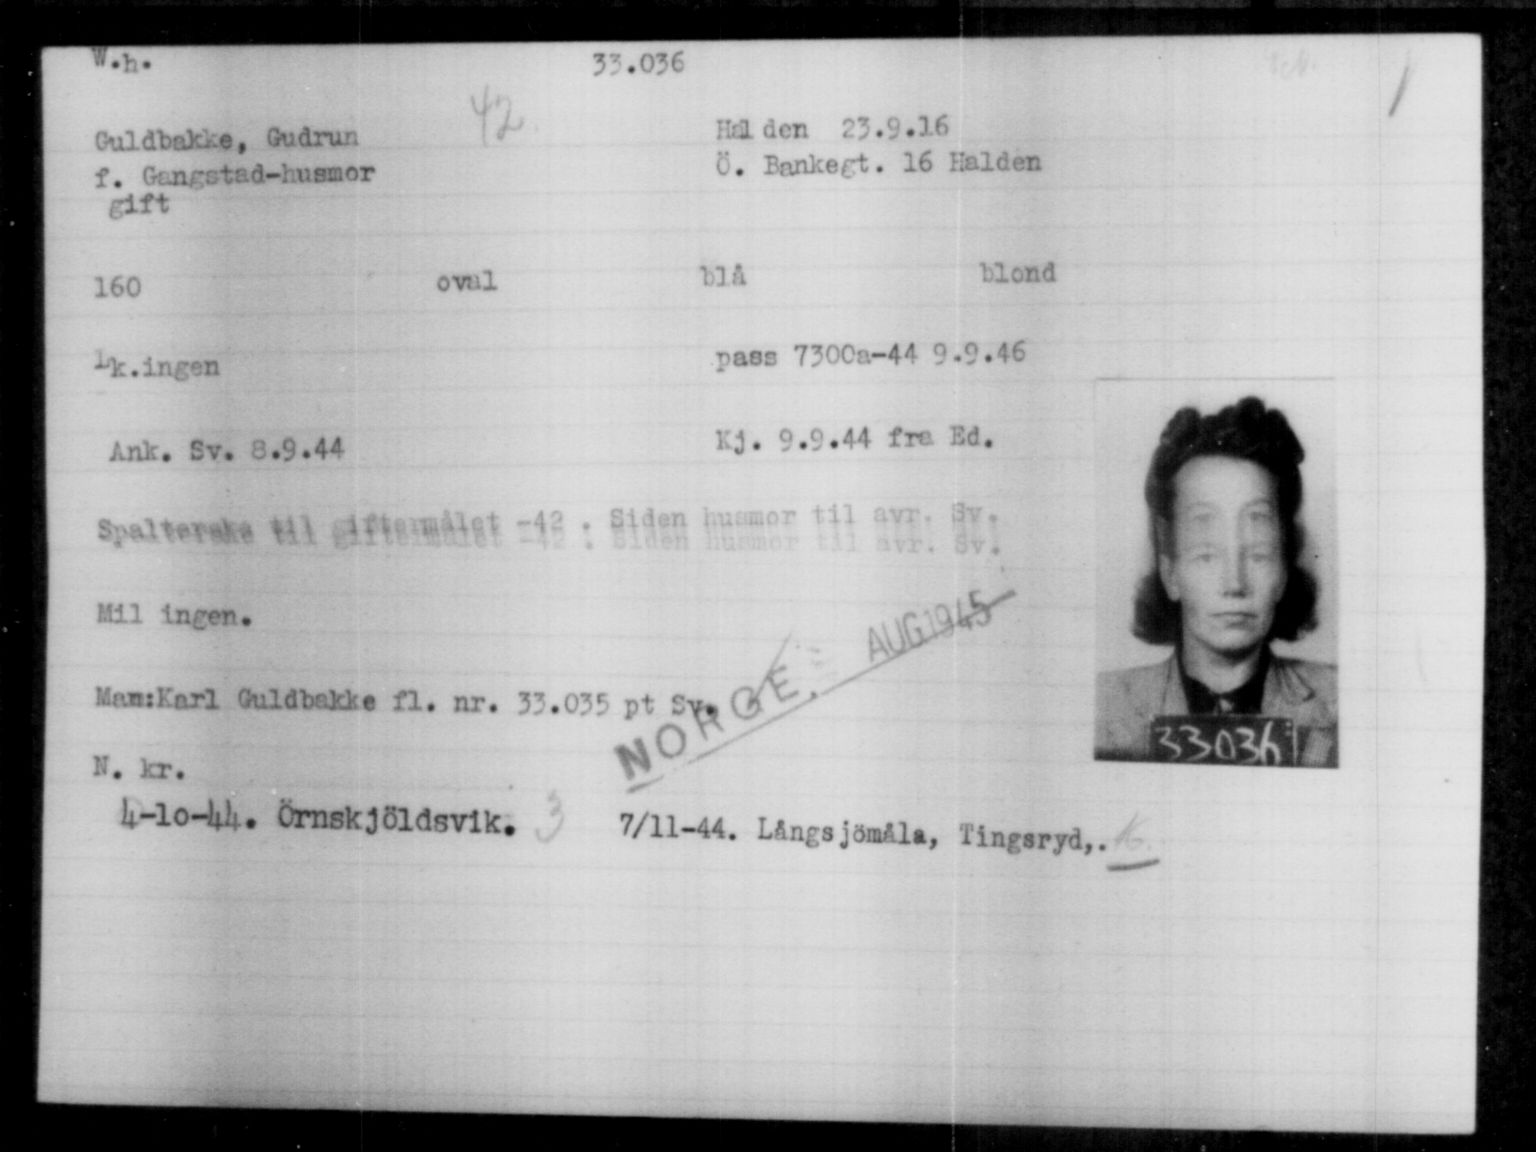 W.h. 33.036
42.
Guldbakke, Gudrun Halden 23.9.16
f. Gangstad-husmor Ö. Bankegt. 16 Halden
gift
160 oval blå blond
Lk.ingen pass 7300a-44 9.9.46
Ank. Sv. 8.9.44 Kj. 9.9.44 fra Ed.
Spalterske til giftermålet -42 . Siden husmor til avr. Sv.
Mil ingen.
NORGE. AUG 1945
Mam:Karl Guldbakke fl. nr. 33.035 pt Sv.
33036
N. kr.
4-10-44. Örnskjöldsvik. 3 7/11-44. Långsjömåla, Tingsryd,.